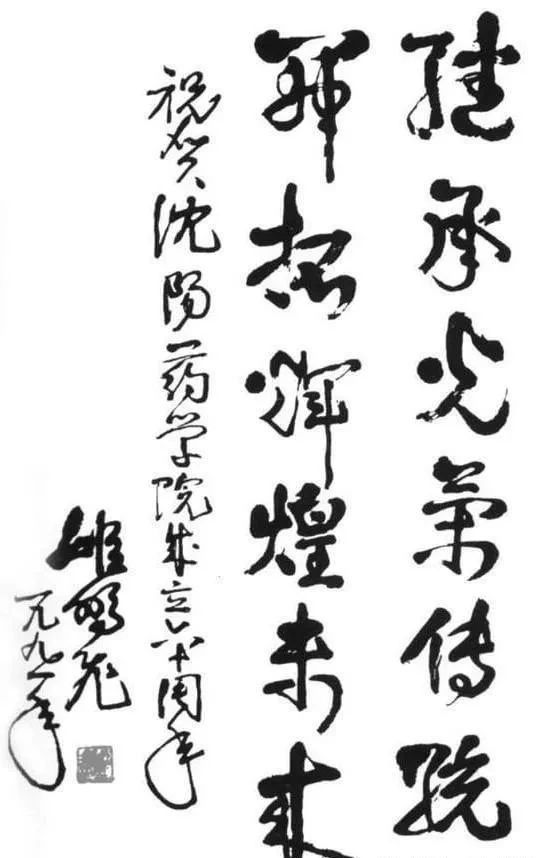 继承光荣传统
开拓辉煌未来
祝贺沈阳药学院成立六十周年
姬鹏飞
一九九一年